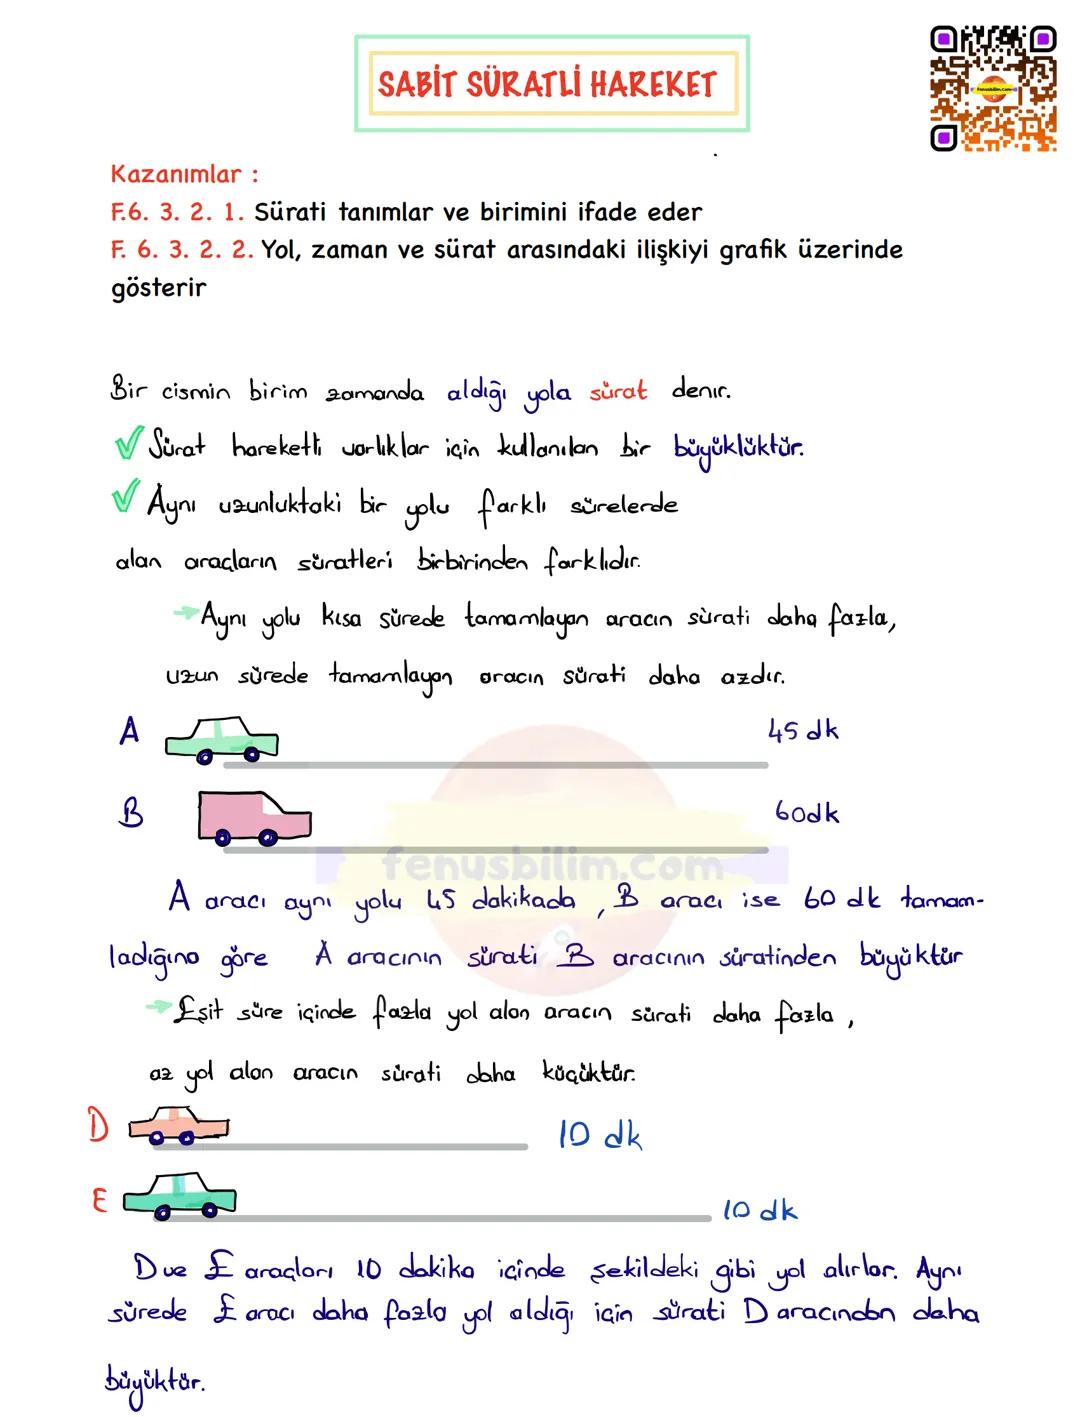 SABİT SÜRATLİ HAREKET
fenusbilim.com
Kazanımlar :
F.6. 3. 2. 1. Sürati tanımlar ve birimini ifade eder
F. 6. 3. 2. 2. Yol, zaman ve sürat arasındaki ilişkiyi grafik üzerinde
gösterir
Bir cismin birim zamanda aldığı yola sürat denir.
Sürat hareketli varlıklar için kullanılan bir büyüklüktür.
Aynı uzunluktaki bir yolu farklı sürelerde
alan araçların süratleri birbirinden farklıdır.
Aynı yolu kısa sürede tamamlayan aracın sürati daha fazla,
uzun sürede tamamlayan aracın sürati daha azdır.
A 45 dk
B 60dk
fenusbilim.com
A aracı aynı yolu 45 dakikada , B aracı ise 60 dk tamam-
ladığına göre A aracının sürati B aracının süratinden büyüktür
Eşit süre içinde fazla yol alan aracın sürati daha fazla ,
az yol alan aracın sürati daha küçüktür.
D 10 dk
E 10 dk
D ve E araçları 10 dakika içinde şekildeki gibi yol alırlar. Aynı
sürede E aracı daha fazla yol aldığı için sürati D aracından daha
büyüktür.